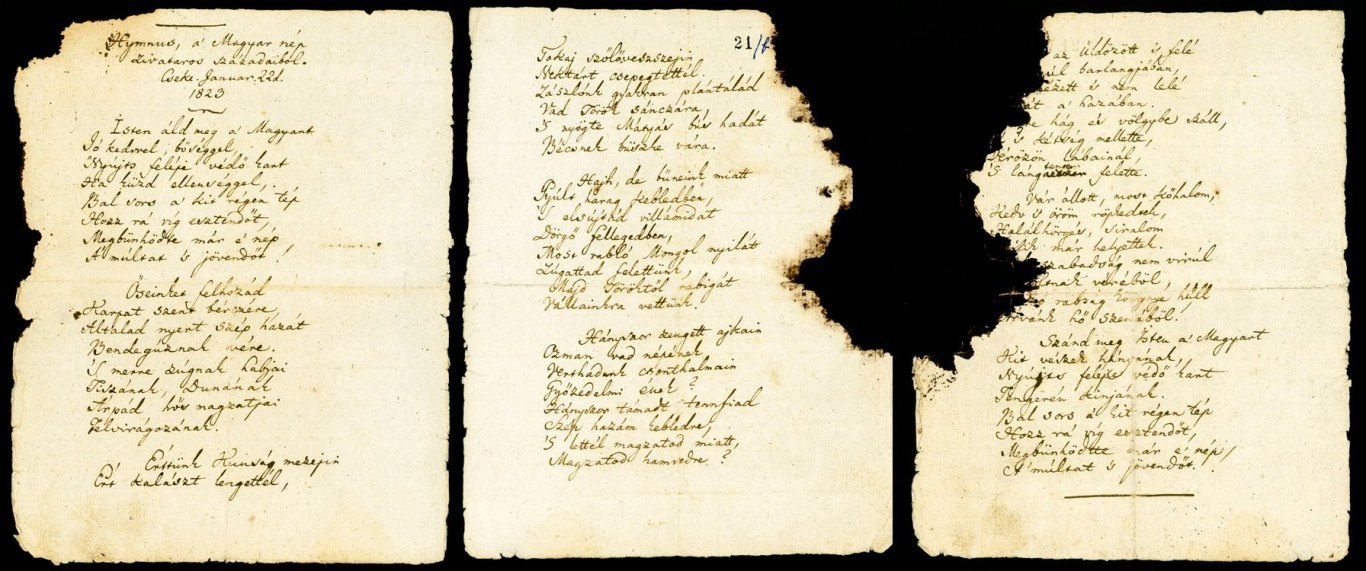 Hymnus, a' Magyar nép
zivataros századaiból.
Cseke. Januar. 22d.
1823
Isten áld meg a' Magyart
Jó kedvvel, bőséggel,
Nyújts feléje védő kart
Ha küzd ellenséggel,
Bal sors a' kit régen tép
Hozz rá víg esztendőt,
Megbűnhödte már e' nép
A' multat 's jövendőt!
Őseinket felhozád
Kárpát szent bérczére,
Általad nyert szép hazát
Bendegúznak vére.
'S merre zúgnak habjai
Tiszának, Dunának
Árpád hős magzatjai
Felvirágozának.
Értünk Kunság mezejin
Ért kalászt lengettél,
21/
Tokaj szőlővesszejin
Nektárt csepegtettél.
Zászlónk gyakran plántálád
Vad Török sánczára,
'S nyögte Mátyás bús hadát
Bécsnek büszke vára.
Hajh, de bűneink miatt
Gyúlt harag kebledben,
'S elsújtád villámidat
Dörgő fellegedben,
Most rabló Mongol nyilát
Zúgattad felettünk,
Majd Töröktől rabigát
Vállainkra vettünk.
Hányszor zengett ajkain
Ozman vad népének
Vert hadunk csonthalmain
Győzedelmi ének?
Hányszor támadt tennfiad
Szép hazám kebledre,
'S lettél magzatod miatt,
Magzatod hamvedre?
az üldözött 's felé
barlangjában,
's nem lelé
a' hazában.
hág és völgybe száll,
's kétség mellette,
Vérözön lábainál,
'S lángtenger felette.
Vár állott, most kőhalom,
Kedv 's öröm röpkedtek,
Halálhörgés, siralom
már helyettek.
szabadság nem virúl
véréből,
rabság könnye hull
hő szeméből.
Szánd meg Isten a' Magyart
Kit vészek hányának,
Nyújts feléje védő kart
Tengerén kínjának.
Bal sors a' kit régen tép
Hozz rá víg esztendőt,
Megbűnhödtte már e' nép
A' multat 's jövendőt!